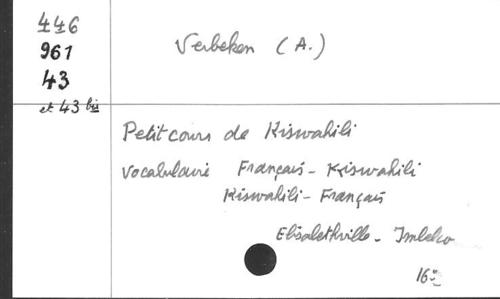 446
961
43
et 43 bis
Verbeken (A.)
Petit cours de Kiswahili
Vocabulaire Français - Kiswahili
Kiswahili - Français
Elisabethville - Imbelco
16°